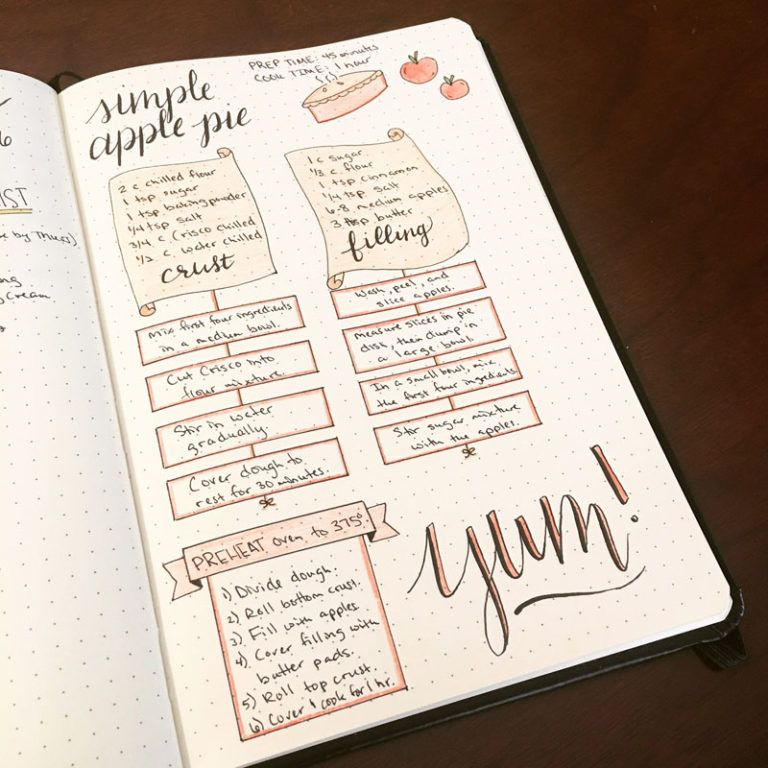 simple
apple pie
PREP TIME: 45 minutes
COOK TIME: 1 hour
2 c chilled flour
1 tsp sugar
1 tsp baking powder
1/4 tsp salt
3/4 c Crisco chilled
1/2 c water chilled
crust
1 c sugar
1/3 c. flour
1 tsp cinnamon
1/4 tsp salt
6-8 medium apples
3 tbsp butter
filling
Mix first four ingredients
in a medium bowl.
Cut Crisco into
flour mixture.
Stir in water
gradually.
Cover dough to
rest for 30 minutes.
Wash, peel, and
slice apples.
Measure slices in pie
dish, then dump in
a large bowl.
In a small bowl, mix
the first four ingredients.
Stir sugar mixture
with the apples.
PREHEAT oven to 375°
1) Divide dough.
2) Roll bottom crust.
3) Fill with apples.
4) Cover filling with
butter pads.
5) Roll top crust.
6) Cover & cook for 1 hr.
yum!
6
IST
e by Thurs)
Cream